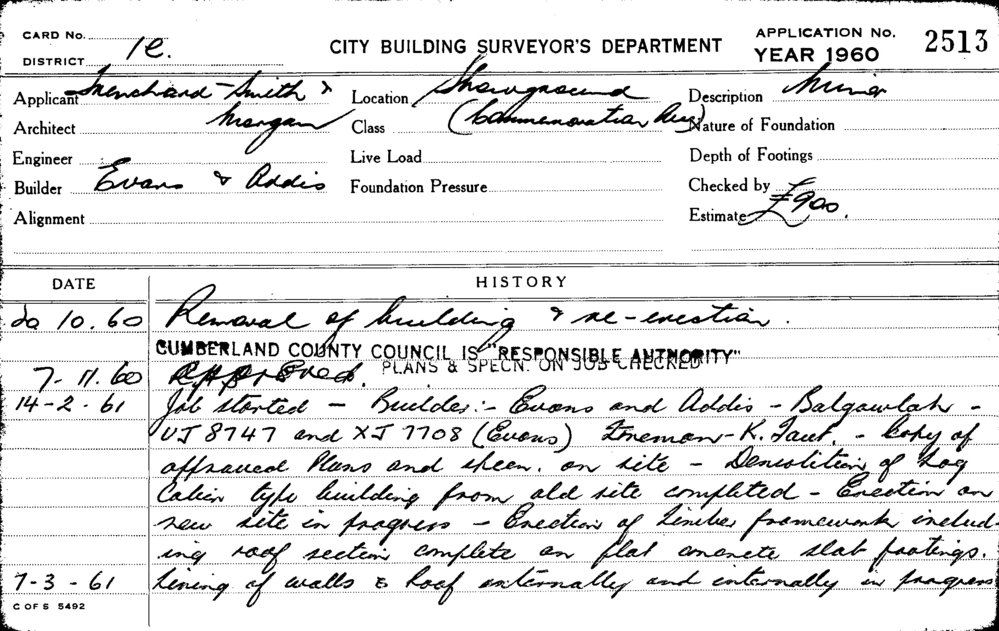 CARD No.
DISTRICT 1e.
CITY BUILDING SURVEYOR'S DEPARTMENT
APPLICATION No. 2513
YEAR 1960
Applicant Trenchard-Smith &
Location Showground
Description Minor
Architect Morgan
Class (Commemoration Ave)
Nature of Foundation
Engineer
Live Load
Depth of Footings
Builder Evans & Addis
Foundation Pressure
Checked by
Alignment
Estimate £900.
DATE HISTORY
20 10. 60 Removal of building & re-erection.
CUMBERLAND COUNTY COUNCIL IS "RESPONSIBLE AUTHORITY"
7. 11. 60 Approved. PLANS & SPECN. ON JOB CHECKED
14-2-61 Job started - Builder:- Evans and Addis - Balgowlah -
UJ 8747 and XJ 7708 (Evans) Foreman - K. - Copy of
approved Plans and specn. on site - Demolition of Log
Cabin type building from old site completed - Erection on
new site in progress - Erection of timber framework includ-
ing roof section complete on flat concrete slab footings.
7-3-61 Lining of walls & Roof externally and internally in progress
C OF S 5492